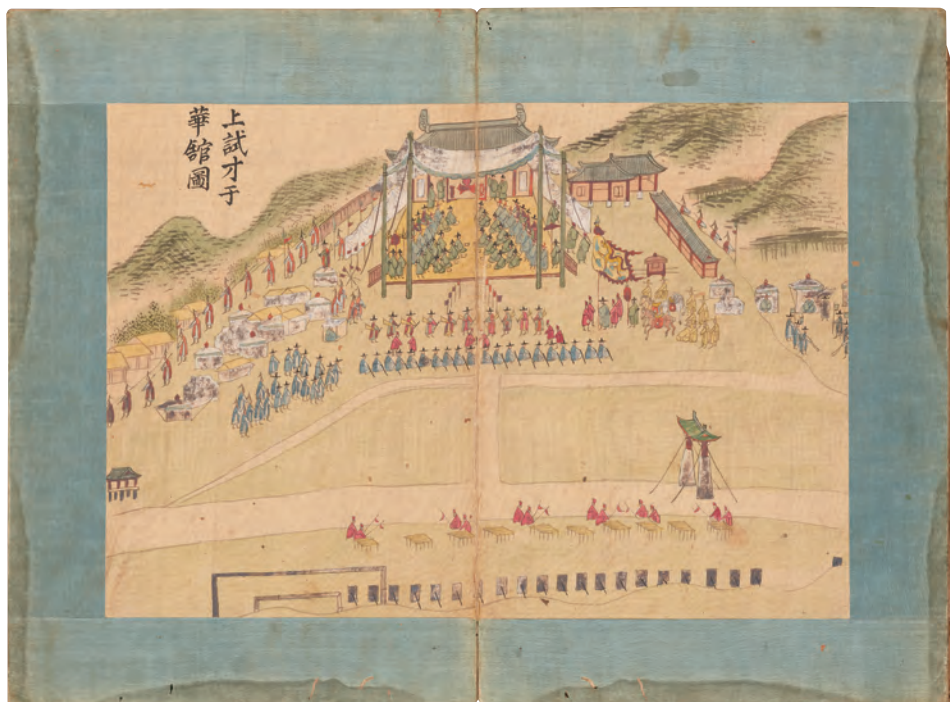 上試才于
華舘圖